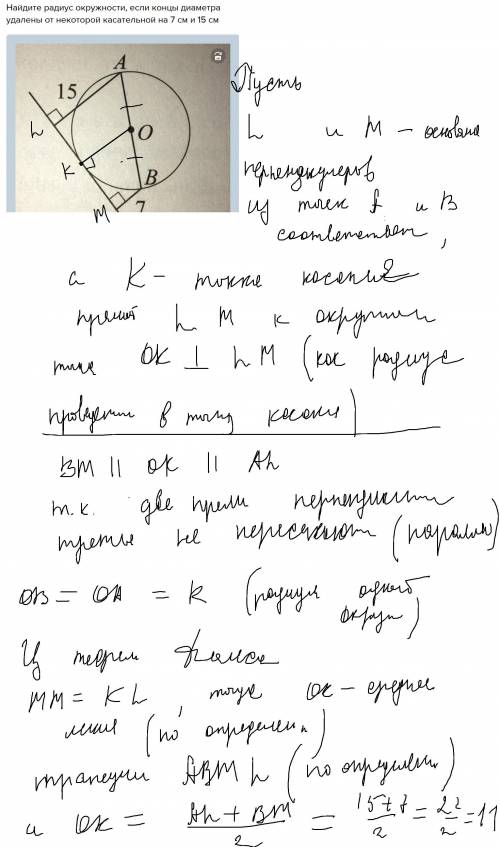 Найдите радиус окружности, если концы диаметра
удалены от некоторой касательной на 7 см и 15 см
A
15
L
O
K
B
M 7
Пусть
L и M — основания
перпендикуляров
из точек A и B
соответствен,
а K - точка касания
прямой L M к окружн
тогда OK ⊥ LM (как радиус
проведен в точку касания)
BM || OK || AL
т.к. две прямы перпендикул
третье не пересекают (параллел)
OB = OA = R (радиусы одной окруж)
Из теорем Фалеса
MM = KL, тогда OK - средняя
линия (по определен)
трапеции ABML (по определен)
а OK = AL + BM / 2 = 15+7 / 2 = 22 / 2 = 11